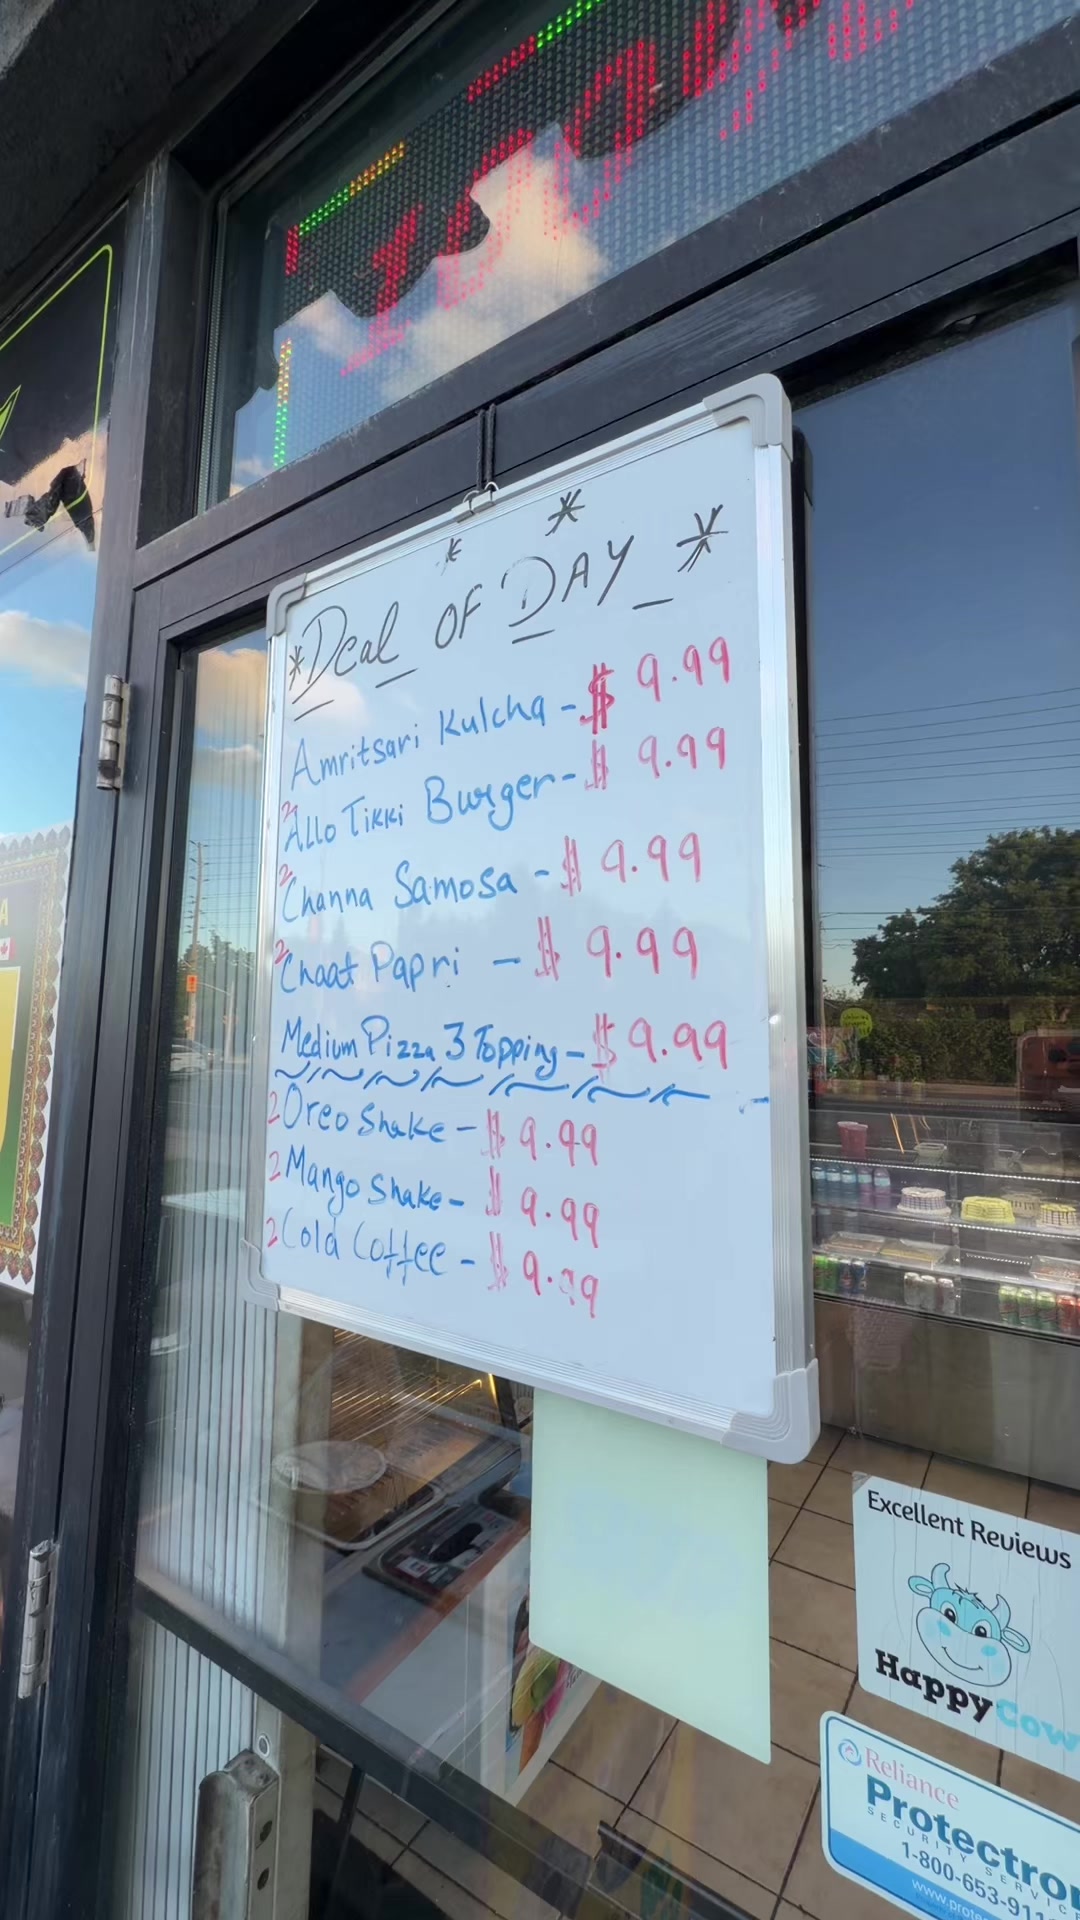 100%
* *
*Deal OF DAY *
Amritsari Kulcha - $ 9.99
2 Allo Tikki Burger - $ 9.99
2 Channa Samosa - $ 9.99
2 Chaat Papri - $ 9.99
Medium Pizza 3 Topping - $ 9.99
2 Oreo Shake - $ 9.99
2 Mango Shake - $ 9.99
2 Cold Coffee - $ 9.99
Excellent Reviews
HappyCow
Reliance
Protectron
SECURITY SERVIC
1-800-653-911
www.prote